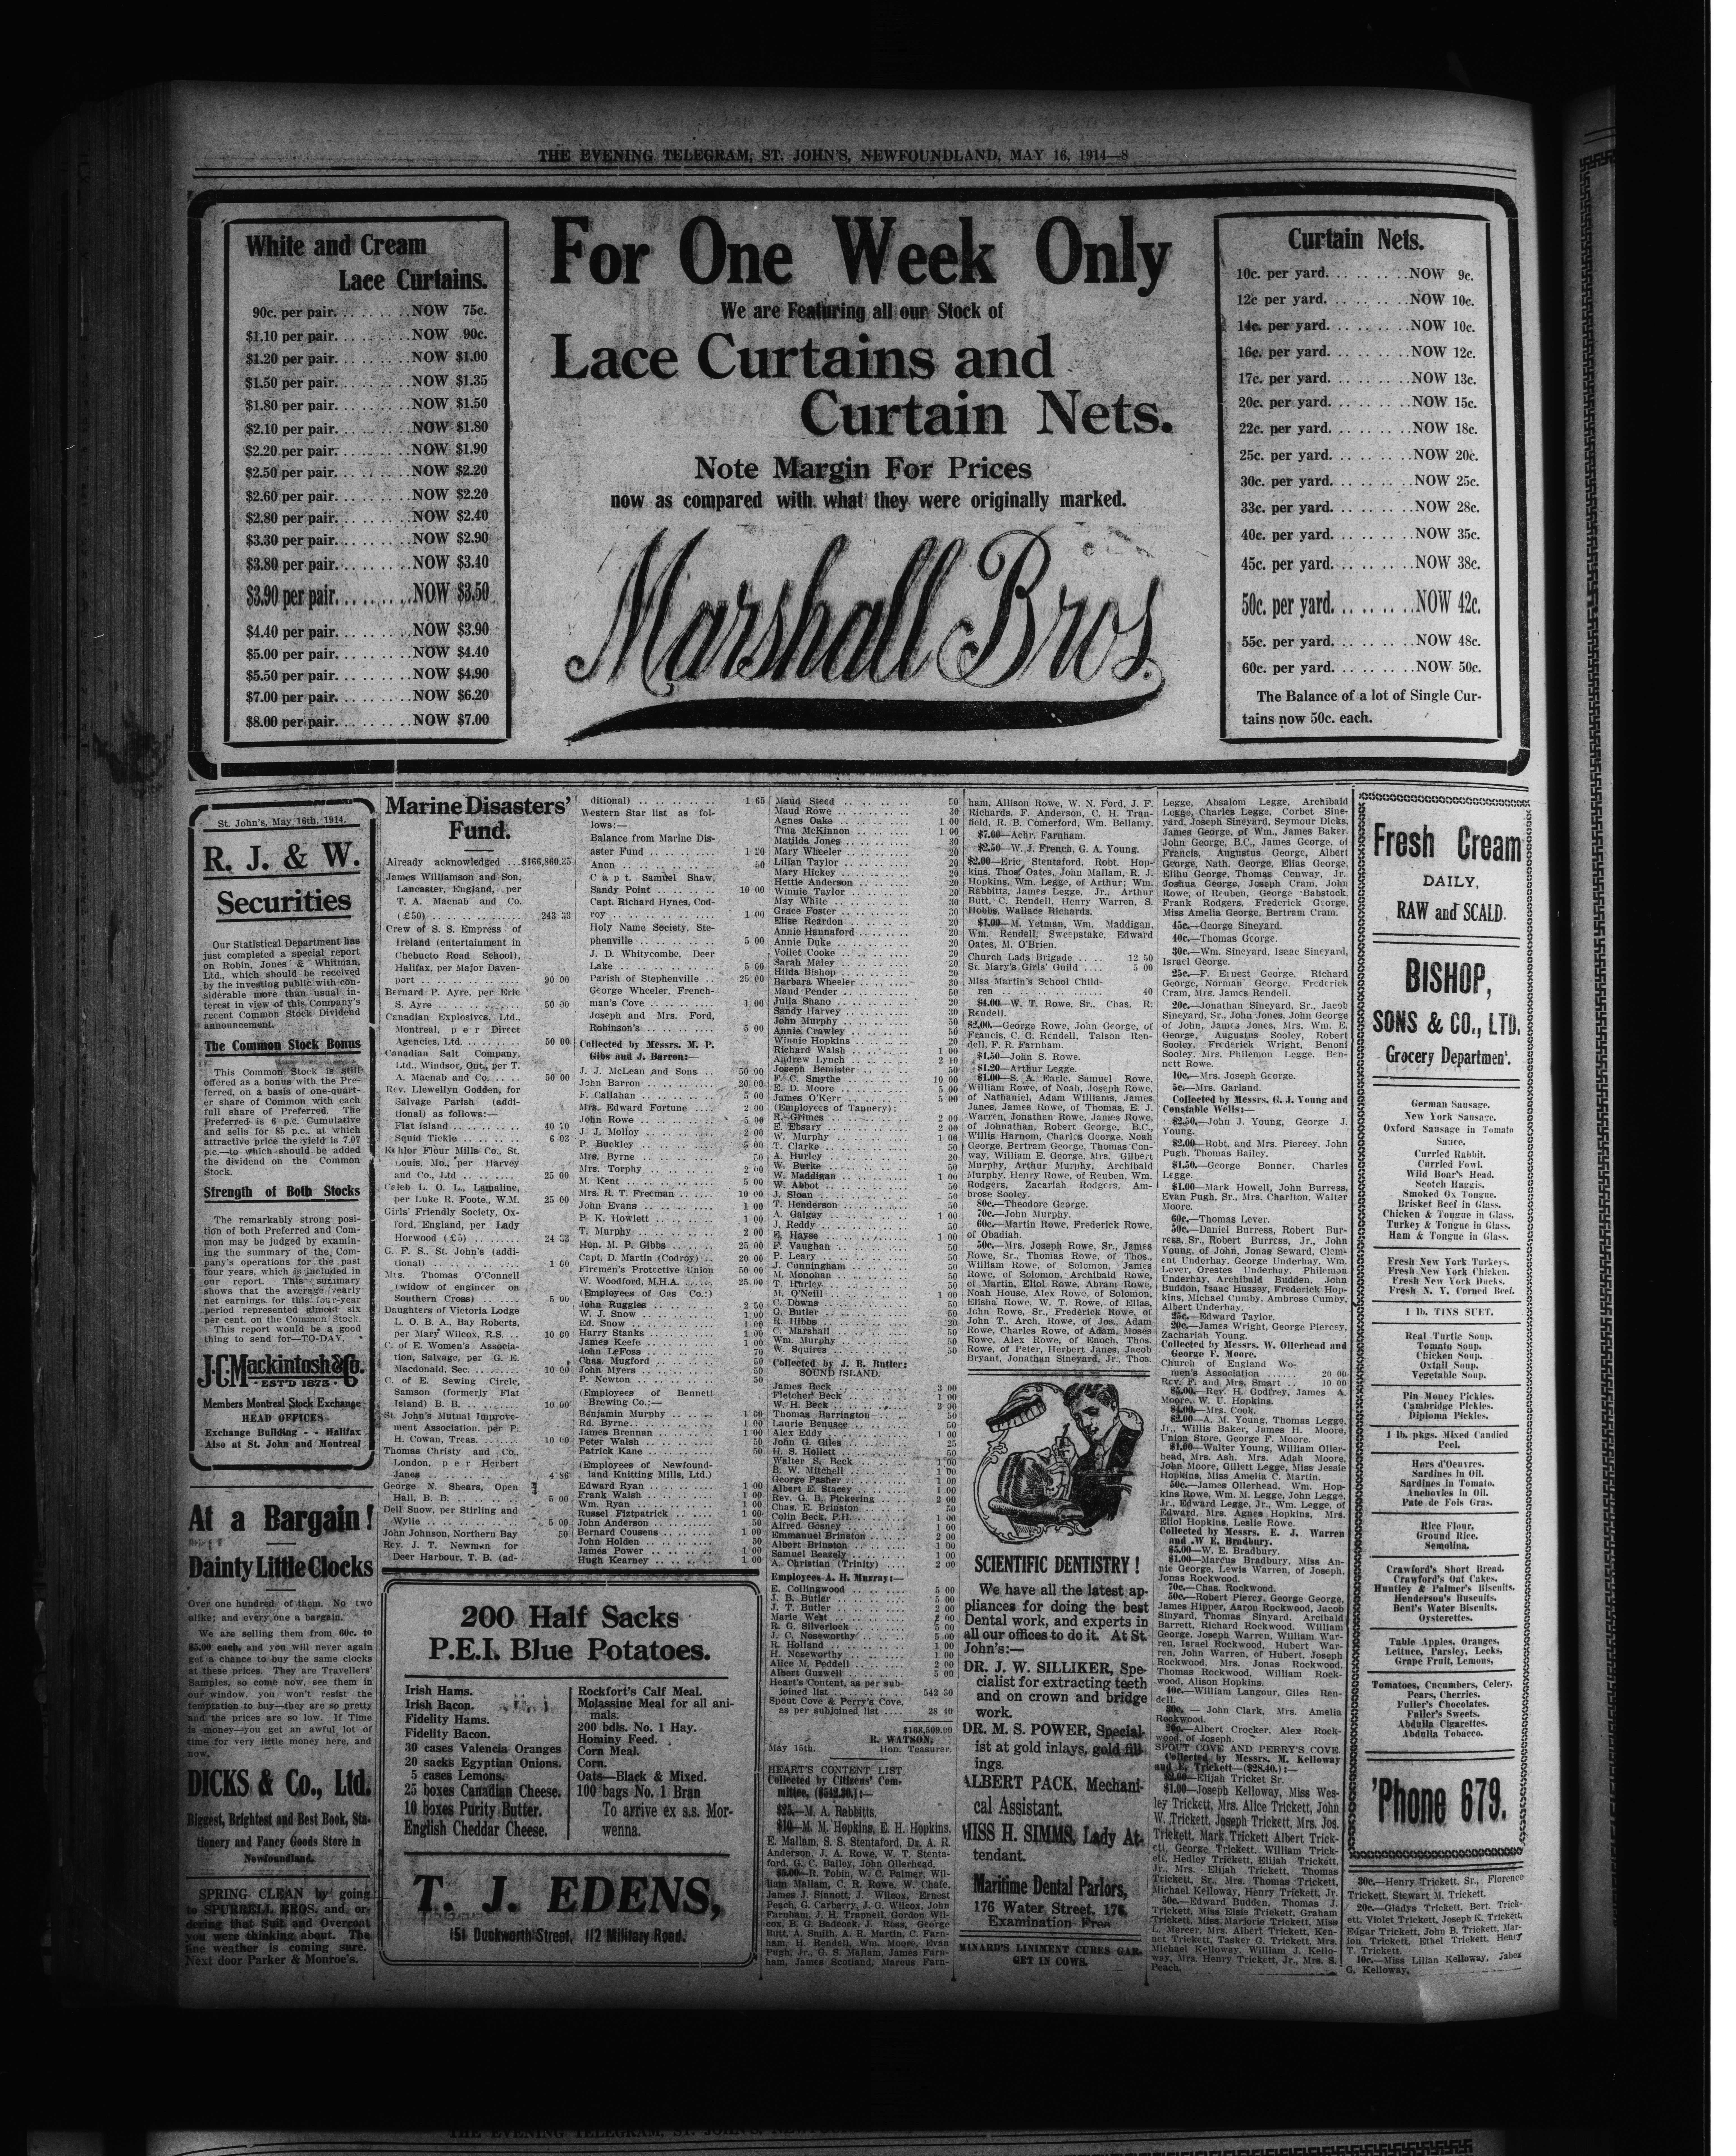 THE EVENING TELEGRAM, ST. JOHN'S, NEWFOUNDLAND, MAY 16, 1914—8
White and Cream
Lace Curtains.
90c. per pair. . . . . . . . .NOW 75c.
$1.10 per pair. . . . . . . . .NOW 90c.
$1.20 per pair. . . . . . . . .NOW $1.00
$1.50 per pair. . . . . . . . .NOW $1.35
$1.80 per pair. . . . . . . . .NOW $1.50
$2.10 per pair. . . . . . . . .NOW $1.80
$2.20 per pair. . . . . . . . .NOW $1.90
$2.50 per pair. . . . . . . . .NOW $2.20
$2.60 per pair. . . . . . . . .NOW $2.20
$2.80 per pair. . . . . . . . .NOW $2.40
$3.30 per pair. . . . . . . . .NOW $2.90
$3.80 per pair. . . . . . . . .NOW $3.40
$3.90 per pair. . . . . . . . .NOW $3.50
$4.40 per pair. . . . . . . . .NOW $3.90
$5.00 per pair. . . . . . . . .NOW $4.40
$5.50 per pair. . . . . . . . .NOW $4.90
$7.00 per pair. . . . . . . . .NOW $6.20
$8.00 per pair. . . . . . . . .NOW $7.00
For One Week Only
We are Featuring all our Stock of
Lace Curtains and
Curtain Nets.
Note Margin For Prices
now as compared with what they were originally marked.
Marshall Bros.
Curtain Nets.
10c. per yard. . . . . . . . .NOW 9c.
12c per yard. . . . . . . . .NOW 10c.
14c. per yard. . . . . . . . .NOW 10c.
16c. per yard. . . . . . . . .NOW 12c.
17c. per yard. . . . . . . . .NOW 13c.
20c. per yard. . . . . . . . .NOW 15c.
22c. per yard. . . . . . . . .NOW 18c.
25c. per yard. . . . . . . . .NOW 20c.
30c. per yard. . . . . . . . .NOW 25c.
33c. per yard. . . . . . . . .NOW 28c.
40c. per yard. . . . . . . . .NOW 35c.
45c. per yard. . . . . . . . .NOW 38c.
50c. per yard. . . . . . . . .NOW 42c.
55c. per yard. . . . . . . . .NOW 48c.
60c. per yard. . . . . . . . .NOW 50c.
The Balance of a lot of Single Cur-
tains now 50c. each.
St. John's, May 16th, 1914.
R. J. & W.
Securities
Our Statistical Department has
just completed a special report
on Robin, Jones & Whitman,
Ltd., which should be received
by the investing public with con-
siderable more than usual in-
terest in view of this Company's
recent Common Stock Dividend
announcement.
The Common Stock Bonus
This Common Stock is still
offered as a bonus with the Pre-
ferred, on a basis of one-quart-
er share of Common with each
full share of Preferred. The
Preferred is 6 p.c. Cumulative
and sells for 85 p.c., at which
attractive price the yield is 7.07
p.c.—to which should be added
the dividend on the Common
Stock.
Strength of Both Stocks
The remarkably strong posi-
tion of both Preferred and Com-
mon may be judged by examin-
ing the summary of the Com-
pany's operations for the past
four years, which is included in
our report. This summary
shows that the average yearly
net earnings for this four-year
period represented almost six
per cent. on the Common Stock.
This report would be a good
thing to send for—TO-DAY.
J.C. Mackintosh & Co.
EST'D 1873
Members Montreal Stock Exchange
HEAD OFFICES
Exchange Building - - Halifax
Also at St. John and Montreal
At a Bargain!
Dainty Little Clocks
Over one hundred of them. No two
alike; and every one a bargain.
We are selling them from 60c. to
$5.00 each, and you will never again
get a chance to buy the same clocks
at these prices. They are Travellers'
Samples, so come now, see them in
our window, you won't resist the
temptation to buy—they are so pretty
and the prices are so low. If Time
is money—you get an awful lot of
time for very little money here, and
now.
DICKS & Co., Ltd.
Biggest, Brightest and Best Book, Sta-
tionery and Fancy Goods Store in
Newfoundland.
SPRING CLEAN by going
to SPURRELL BROS. and or-
dering that Suit and Overcoat
you were thinking about. The
fine weather is coming sure.
Next door Parker & Monroe's.
Marine Disasters'
Fund.
Already acknowledged ...$166,860.35
James Williamson and Son,
Lancaster, England, per
T. A. Macnab and Co.
(£50) . . . . 243 33
Crew of S. S. Empress of
Ireland (entertainment in
Chebucto Road School),
Halifax, per Major Daven-
port . . . . 90 00
Bernard P. Ayre, per Eric
S. Ayre . . . . 50 00
Canadian Explosives, Ltd.,
Montreal, per Direct
Agencies, Ltd. . . . . 50 00
Canadian Salt Company,
Ltd., Windsor, Ont., per T.
A. Macnab and Co. . . . 50 00
Rev. Llewellyn Godden, for
Salvage Parish (addi-
tional) as follows:—
Flat Island . . . . 40 70
Squid Tickle . . . . 6 03
Kehlor Flour Mills Co., St.
Louis, Mo., per Harvey
and Co., Ltd . . . . 25 00
Caleb L. O. L., Lamaline,
per Luke R. Foote., W.M. 25 00
Girls' Friendly Society, Ox-
ford, England, per Lady
Horwood (£5) . . . . 24 33
G. F. S., St. John's (addi-
tional) . . . . 1 60
Mrs. Thomas O'Connell
(widow of engineer on
Southern Cross) . . . . 5 00
Daughters of Victoria Lodge
L. O. B. A., Bay Roberts,
per Mary Wilcox, R.S. . . 10 00
C. of E. Women's Associa-
tion, Salvage, per G. E.
Macdonald, Sec. . . . . 10 00
C. of E. Sewing Circle,
Samson (formerly Flat
Island) B. B. . . . . 10 00
St. John's Mutual Improve-
ment Association, per P.
H. Cowan, Treas. . . . . 10 00
Thomas Christy and Co.,
London, per Herbert
Janes . . . . 4 86
George N. Shears, Open
Hall, B. B. . . . . 5 00
Dell Snow, per Stirling and
Wylie . . . . 5 00
John Johnson, Northern Bay 50
Rev. J. T. Newman for
Deer Harbour, T. B. (ad-
ditional) . . . . 1 65
Western Star list as fol-
lows:—
Balance from Marine Dis-
aster Fund . . . . 1 20
Anon . . . . 50
Capt. Samuel Shaw,
Sandy Point . . . . 10 00
Capt. Richard Hynes, Cod-
roy . . . . 1 00
Holy Name Society, Ste-
phenville . . . . 5 00
J. D. Whitycombe, Deer
Lake . . . . 5 00
Parish of Stephenville . . 25 00
George Wheeler, French-
man's Cove . . . . 1 00
Joseph and Mrs. Ford,
Robinson's . . . . 5 00
Collected by Messrs. M. P.
Gibs and J. Barron:—
J. J. McLean and Sons . . 50 00
John Barron . . . . 20 00
F. Callahan . . . . 5 00
Mrs. Edward Fortune . . . 2 00
John Rowe . . . . 5 00
J. J. Molloy . . . . 2 00
P. Buckley . . . . 5 00
Mrs. Byrne . . . . 50
Mrs. Torphy . . . . 2 00
M. Kent . . . . 5 00
Mrs. R. T. Freeman . . . . 10 00
John Evans . . . . 1 00
P. K. Howlett . . . . 1 00
T. Murphy . . . . 2 00
Hon. M. P. Gibbs . . . . 25 00
Capt. D. Martin (Codroy) . . 20 00
Firemen's Protective Union 50 00
W. Woodford, M.H.A. . . . . 25 00
(Employees of Gas Co.:)
John Ruggles . . . . 2 50
W. J. Snow . . . . 1 00
Ed. Snow . . . . 1 00
Harry Stanks . . . . 1 00
James Keefe . . . . 1 00
John LeFoss . . . . 70
Chas. Mugford . . . . 50
John Myers . . . . 50
P. Newton . . . . 50
(Employees of Bennett
Brewing Co.:—
Benjamin Murphy . . . . 1 00
Rd. Byrne . . . . 1 00
James Brennan . . . . 1 00
Peter Walsh . . . . 50
Patrick Kane . . . . 50
(Employees of Newfound-
land Knitting Mills, Ltd.)
Edward Ryan . . . . 1 00
Frank Walsh . . . . 1 00
Wm. Ryan . . . . 1 00
Russel Fiztpatrick . . . . 1 00
John Anderson . . . . 50
Bernard Cousens . . . . 1 00
John Holden . . . . 50
James Power . . . . 1 00
Hugh Kearney . . . . 1 00
200 Half Sacks
P.E.I. Blue Potatoes.
Irish Hams.
Irish Bacon.
Fidelity Hams.
Fidelity Bacon.
30 cases Valencia Oranges
20 sacks Egyptian Onions.
5 cases Lemons.
25 boxes Canadian Cheese.
10 boxes Purity Butter.
English Cheddar Cheese.
Rockfort's Calf Meal.
Molassine Meal for all ani-
mals.
200 bdls. No. 1 Hay.
Hominy Feed.
Corn Meal.
Corn.
Oats—Black & Mixed.
100 bags No. 1 Bran
To arrive ex s.s. Mor-
wenna.
T. J. EDENS,
151 Duckworth Street, 112 Military Road.
Maud Steed . . . . 50
Maud Rowe . . . . 30
Agnes Oake . . . . 1 00
Tina McKinnon . . . . 1 00
Matilda Jones . . . . 30
Mary Wheeler . . . . 20
Lilian Taylor . . . . 20
Mary Hickey . . . . 20
Hettie Anderson . . . . 20
Winnie Taylor . . . . 20
May White . . . . 30
Grace Foster . . . . 30
Elise Reardon . . . . 20
Annie Hannaford . . . . 20
Annie Duke . . . . 20
Voilet Cooke . . . . 20
Sarah Maley . . . . 20
Hilda Bishop . . . . 20
Barbara Wheeler . . . . 30
Maud Pender . . . . 50
Julia Shano . . . . 20
Sandy Harvey . . . . 30
John Murphy . . . . 50
Annie Crawley . . . . 50
Winnie Hopkins . . . . 20
Richard Walsh . . . . 1 00
Andrew Lynch . . . . 2 10
Joseph Bemister . . . . 50
F. C. Smythe . . . . 10 00
E. D. Moore . . . . 5 00
James O'Kerr . . . . 5 00
(Employees of Tannery):
R. Grimes . . . . 2 00
E. Ebsary . . . . 2 00
W. Murphy . . . . 1 00
T. Clarke . . . . 50
A. Hurley . . . . 50
W. Burke . . . . 50
W. Maddigan . . . . 1 00
W. Abbot . . . . 50
J. Sloan . . . . 50
T. Henderson . . . . 50
A. Galgay . . . . 1 00
J. Reddy . . . . 50
E. Hayse . . . . 1 00
F. Vaughan . . . . 50
P. Leary . . . . 50
J. Cunningham . . . . 50
M. Monohan . . . . 50
T. Hurley . . . . 50
M. O'Neill . . . . 1 00
C. Downs . . . . 50
G. Butler . . . . 50
R. Hibbs . . . . 20
C. Marshall . . . . 50
Wm. Murphy . . . . 50
W. Squires . . . . 50
Collected by J. B. Butler:
SOUND ISLAND.
James Beck . . . . 3 00
Fletcher Beck . . . . 1 00
W. H. Beck . . . . 2 00
Thomas Barrington . . . . 50
Laurie Benusce . . . . 50
Alex Eddy . . . . 1 00
John G. Giles . . . . 25
H. S. Hollett . . . . 50
Walter S. Beck . . . . 1 00
B. W. Mitchell . . . . 1 00
George Pasher . . . . 1 00
Albert E. Stacey . . . . 1 00
Rev. G. B. Pickering . . . . 2 00
Chas. E. Brinston . . . . 50
Colin Beck, P.H. . . . . 1 00
Alfred Gosney . . . . 1 00
Emmanuel Brinston . . . . 2 00
Albert Brinston . . . . 1 00
Samuel Beazely . . . . 1 00
A. Christian (Trinity) . . . . 2 00
Employees A. H. Murray:—
E. Collingwood . . . . 5 00
J. B. Butler . . . . 5 00
J. T. Butler . . . . 2 00
Marie West . . . . 2 00
R. G. Silverlock . . . . 5 00
J. C. Noseworthy . . . . 5 00
R. Holland . . . . 1 00
H. Noseworthy . . . . 1 00
Alice M. Peddell . . . . 2 00
Albert Guzwell . . . . 5 00
Heart's Content, as per sub-
joined list . . . . 542 30
Spout Cove & Perry's Cove,
as per subjoined list . . . . 28 40
$168,509.00
R. WATSON,
May 15th. Hon. Treasurer.
HEART'S CONTENT LIST
Collected by Citizens' Com-
mittee, ($542.30.):—
$25.—M. A. Rabbitts.
$10—M. M. Hopkins, E. H. Hopkins,
E. Mallam, S. S. Stentaford, Dr. A. R.
Anderson, J. A. Rowe, W. T. Stenta-
ford, G. C. Bailey, John Ollerhead.
$5.00.—R. Tobin, W. C. Palmer, Wil-
liam Mallam, C. R. Rowe, W. Chafe,
James J. Sinnott, J. Wilcox, Ernest
Peach, G. Carberry, J. G. Wilcox, John
Farnham, J. H. Trapnell, Gordon Wil-
cox, B. G. Badcock, J. Ross, George
Butt, A. Smith, A. R. Martin, C. Farn-
ham, H. Rendell, Wm. Moore, Evan
Pugh, Jr., G. S. Mallam, James Farn-
ham, James Scotland, Marcus Farn-
ham, Allison Rowe, W. N. Ford, J. F.
Richards, F. Anderson, C. H. Tran-
field, R. B. Comerford, Wm. Bellamy.
$7.00—Achr. Farnham.
$2.50—W. J. French, G. A. Young.
$2.00—Eric Stentaford, Robt. Hop-
kins, Thos. Oates, John Mallam, R. J.
Hopkins, Wm. Legge, of Arthur; Wm.
Rabbitts, James Legge, Jr., Arthur
Butt, C. Rendell, Henry Warren, S.
Hobbs, Wallace Richards.
$1.00—M. Yetman, Wm. Maddigan,
Wm. Rendell, Sweepstake, Edward
Oates, M. O'Brien.
Church Lads Brigade . . . . 12 50
St. Mary's Girls' Guild . . . . 5 00
Miss Martin's School Child-
ren . . . . 40
$4.00—W. T. Rowe, Sr., Chas. R.
Rendell.
$2.00.—George Rowe, John George, of
Francis, C. G. Rendell, Talson Ren-
dell, F. R. Farnham.
$1.50—John S. Rowe.
$1.20—Arthur Legge.
$1.00—S. A. Earle, Samuel Rowe,
William Rowe, of Noah, Joseph Rowe,
of Nathaniel, Adam Williams, James
Janes, James Rowe, of Thomas, E. J.
Warren, Jonathan Rowe, James Rowe,
of Johnathan, Robert George, B.C.,
Willis Harnom, Charles George, Noah
George, Bertram George, Thomas Con-
way, William E. George, Mrs. Gilbert
Murphy, Arthur Murphy, Archibald
Murphy, Henry Rowe, of Reuben, Wm.
Rodgers, Zacariah Rodgers, Am-
brose Sooley.
80c.—Theodore George.
70c.—John Murphy.
60c.—Martin Rowe, Frederick Rowe,
of Obadiah.
50c.—Mrs. Joseph Rowe, Sr., James
Rowe, Sr., Thomas Rowe, of Thos.,
William Rowe, of Solomon, James
Rowe, of Solomon, Archibald Rowe,
of Martin, Eliol Rowe, Abram Rowe,
Noah House, Alex Rowe, of Solomon,
Elisha Rowe, W. T. Rowe, of Elias,
John Rowe, Sr., Frederick Rowe, of
John T., Arch. Rowe, of Jos., Adam
Rowe, Charles Rowe, of Adam, Moses
Rowe, Alex Rowe, of Enoch, Thos.
Rowe, of Peter, Herbert Janes, Jacob
Bryant, Jonathan Sineyard, Jr., Thos.
SCIENTIFIC DENTISTRY!
We have all the latest ap-
pliances for doing the best
Dental work, and experts in
all our offices to do it. At St.
John's:—
DR. J. W. SILLIKER, Spe-
cialist for extracting teeth
and on crown and bridge
work.
DR. M. S. POWER, Special-
ist at gold inlays, gold fill-
ings.
ALBERT PACK, Mechani-
cal Assistant.
MISS H. SIMMS, Lady At-
tendant.
Maritime Dental Parlors,
176 Water Street, 176.
Examination Free
MINARD'S LINIMENT CURES GAR-
GET IN COWS.
Legge, Absalom Legge, Archibald
Legge, Charles Legge, Corbet Sine-
yard, Joseph Sineyard, Seymour Dicks,
James George, of Wm., James Baker,
John George, B.C., James George, of
Francis, Augustus George, Albert
George, Nath. George, Elias George,
Elihu George, Thomas Conway, Jr.,
Joshua George, Joseph Cram, John
Rowe, of Reuben, George Babstock,
Frank Rodgers, Frederick George,
Miss Amelia George, Bertram Cram.
45c.—George Sineyard.
40c.—Thomas George.
30c.—Wm. Sineyard, Isaac Sineyard,
Israel George.
25c.—F. Ernest George, Richard
George, Norman George, Frederick
Cram, Mrs. James Rendell.
20c.—Jonathan Sineyard, Sr., Jacob
Sineyard, Sr., John Jones, John George
of John, James Jonea, Mrs. Wm. E.
George, Augustus Sooley, Robert
Sooley, Frederick Wright, Benoni
Sooley, Mrs. Philemon Legge, Ben-
nett Rowe.
10c.—Mrs. Joseph George.
5c.—Mrs. Garland.
Collected by Messrs. G. J. Young and
Constable Wells:—
$2.50.—John J. Young, George J.
Young.
$2.00—Robt. and Mrs. Piercey, John
Pugh, Thomas Bailey.
$1.50.—George Bonner, Charles
Legge.
$1.00—Mark Howell, John Burress,
Evan Pugh, Sr., Mrs. Charlton, Walter
Moore.
60c.—Thomas Lever.
50c.—Daniel Burress, Robert Bur-
ress, Sr., Robert Burress, Jr., John
Young, of John, Jonas Seward, Clem-
ent Underhay, George Underhay, Wm.
Lever, Orestes Underhay, Philemon
Underhay, Archibald Budden, John
Buddon, Isaac Hussey, Frederick Hop-
kins, Michael Cumby, Ambrose Cumby,
Albert Underhay.
25c.—Edward Taylor.
20c.—James Wright, George Piercey,
Zachariah Young.
Collected by Messrs. W. Ollerhead and
George F. Moore.
Church of England Wo-
men's Association . . . . 20 00
Rev. F. and Mrs. Smart . . 10 00
$5.00.—Rev. H. Godfrey, James A.
Moore, W. U. Hopkins.
$4.00.—Mrs. Cook.
$2.00—A. M. Young, Thomas Legge,
Jr., Willis Baker, James H. Moore,
Union Store, George F. Moore.
$1.00—Walter Young, William Oller-
head, Mrs. Ash, Mrs. Adah Moore,
John Moore, Gillett Legge, Miss Jessie
Hopkins, Miss Amelia C. Martin.
50c.—James Ollerhead, Wm. Hop-
kins Rowe, Wm. M. Legge, John Legge,
Jr., Edward Legge, Jr., Wm. Legge, of
Edward, Mrs. Agnes Hopkins, Mrs.
Eliol Hopkins, Leslie Rowe.
Collected by Messrs. E. J. Warren
and W. E. Bradbury.
$5.00—W. E. Bradbury.
$1.00—Marcus Bradbury, Miss An-
nie George, Lewis Warren, of Joseph,
Jonas Rockwood.
70c.—Chas. Rockwood.
50c.—Robert Piercy, George George,
James Hipper, Aaron Rockwood, Jacob
Sinyard, Thomas Sinyard, Arcibald
Barrett, Richard Rockwood, William
George, Joseph Warren, William War-
ren, Israel Rockwood, Hubert War-
ren, John Warren, of Hubert, Joseph
Rockwood, Mrs. Jonas Rockwood,
Thomas Rockwood, William Rock-
wood, Alison Hopkins.
40c.—William Langour, Giles Ren-
dell.
30c. — John Clark, Mrs. Amelia
Rockwood.
20c.—Albert Crocker, Alex Rock-
wood, of Joseph.
SPOUT COVE AND PERRY'S COVE.
Collected by Messrs. M. Kelloway
and E. Trickett—($28.40.):—
$2.00—Elijah Tricket Sr.
$1.00—Joseph Kelloway, Miss Wes-
ley Trickett, Mrs. Alice Trickett, John
W. Trickett, Joseph Trickett, Mrs. Jos.
Trickett, Mark Trickett Albert Trick-
ett, George Trickett, William Trick-
ett, Hedley Trickett, Elijah Trickett,
Jr., Mrs. Elijah Trickett, Thomas
Trickett, Sr., Mrs. Thomas Trickett,
Michael Kelloway, Henry Trickett, Jr.
50c.—Edward Budden, Thomas J.
Trickett, Miss Elsie Trickett, Graham
Trickett, Miss Marjorie Trickett, Miss
L. Mercer, Mrs. Albert Trickett, Ken-
net Trickett, Tasker G. Trickett, Mrs.
Michael Kelloway, William J. Kello-
way, Mrs. Henry Trickett, Jr., Mrs. S.
Peach.
Fresh Cream
DAILY,
RAW and SCALD.
BISHOP,
SONS & CO., LTD.
Grocery Department.
German Sausage.
New York Sausage.
Oxford Sausage in Tomato
Sauce.
Curried Rabbit.
Curried Fowl.
Wild Boar's Head.
Scotch Haggis.
Smoked Ox Tongue.
Brisket Beef in Glass.
Chicken & Tongue in Glass.
Turkey & Tongue in Glass.
Ham & Tongue in Glass.
Fresh New York Turkeys.
Fresh New York Chicken.
Fresh New York Ducks.
Fresh N. Y. Corned Beef.
1 lb. TINS SUET.
Real Turtle Soup.
Tomato Soup.
Chicken Soup.
Oxtail Soup.
Vegetable Soup.
Pin Money Pickles.
Cambridge Pickles.
Diploma Pickles.
1 lb. pkgs. Mixed Candied
Peel.
Hors d'Oeuvres.
Sardines in Oil.
Sardines in Tomato.
Anchovies in Oil.
Pate de Fois Gras.
Rice Flour.
Ground Rice.
Semolina.
Crawford's Short Bread.
Crawford's Oat Cakes.
Huntley & Palmer's Biscuits.
Henderson's Buscuits.
Bent's Water Biscuits.
Oysterettes.
Table Apples, Oranges,
Lettuce, Parsley, Leeks,
Grape Fruit, Lemons,
Tomatoes, Cucumbers, Celery,
Pears, Cherries.
Fuller's Chocolates.
Fuller's Sweets.
Abdulla Cigarettes.
Abdulla Tobacco.
'Phone 679.
30c.—Henry Trickett, Sr., Florence
Trickett, Stewart M. Trickett.
20c.—Gladys Trickett, Bert. Trick-
ett, Violet Trickett, Joseph K. Trickett,
Edgar Trickett, John B. Trickett, Mar-
ion Trickett, Ethel Trickett, Henry
T. Trickett.
10c.—Miss Lilian Kelloway, Jabez
G. Kelloway.